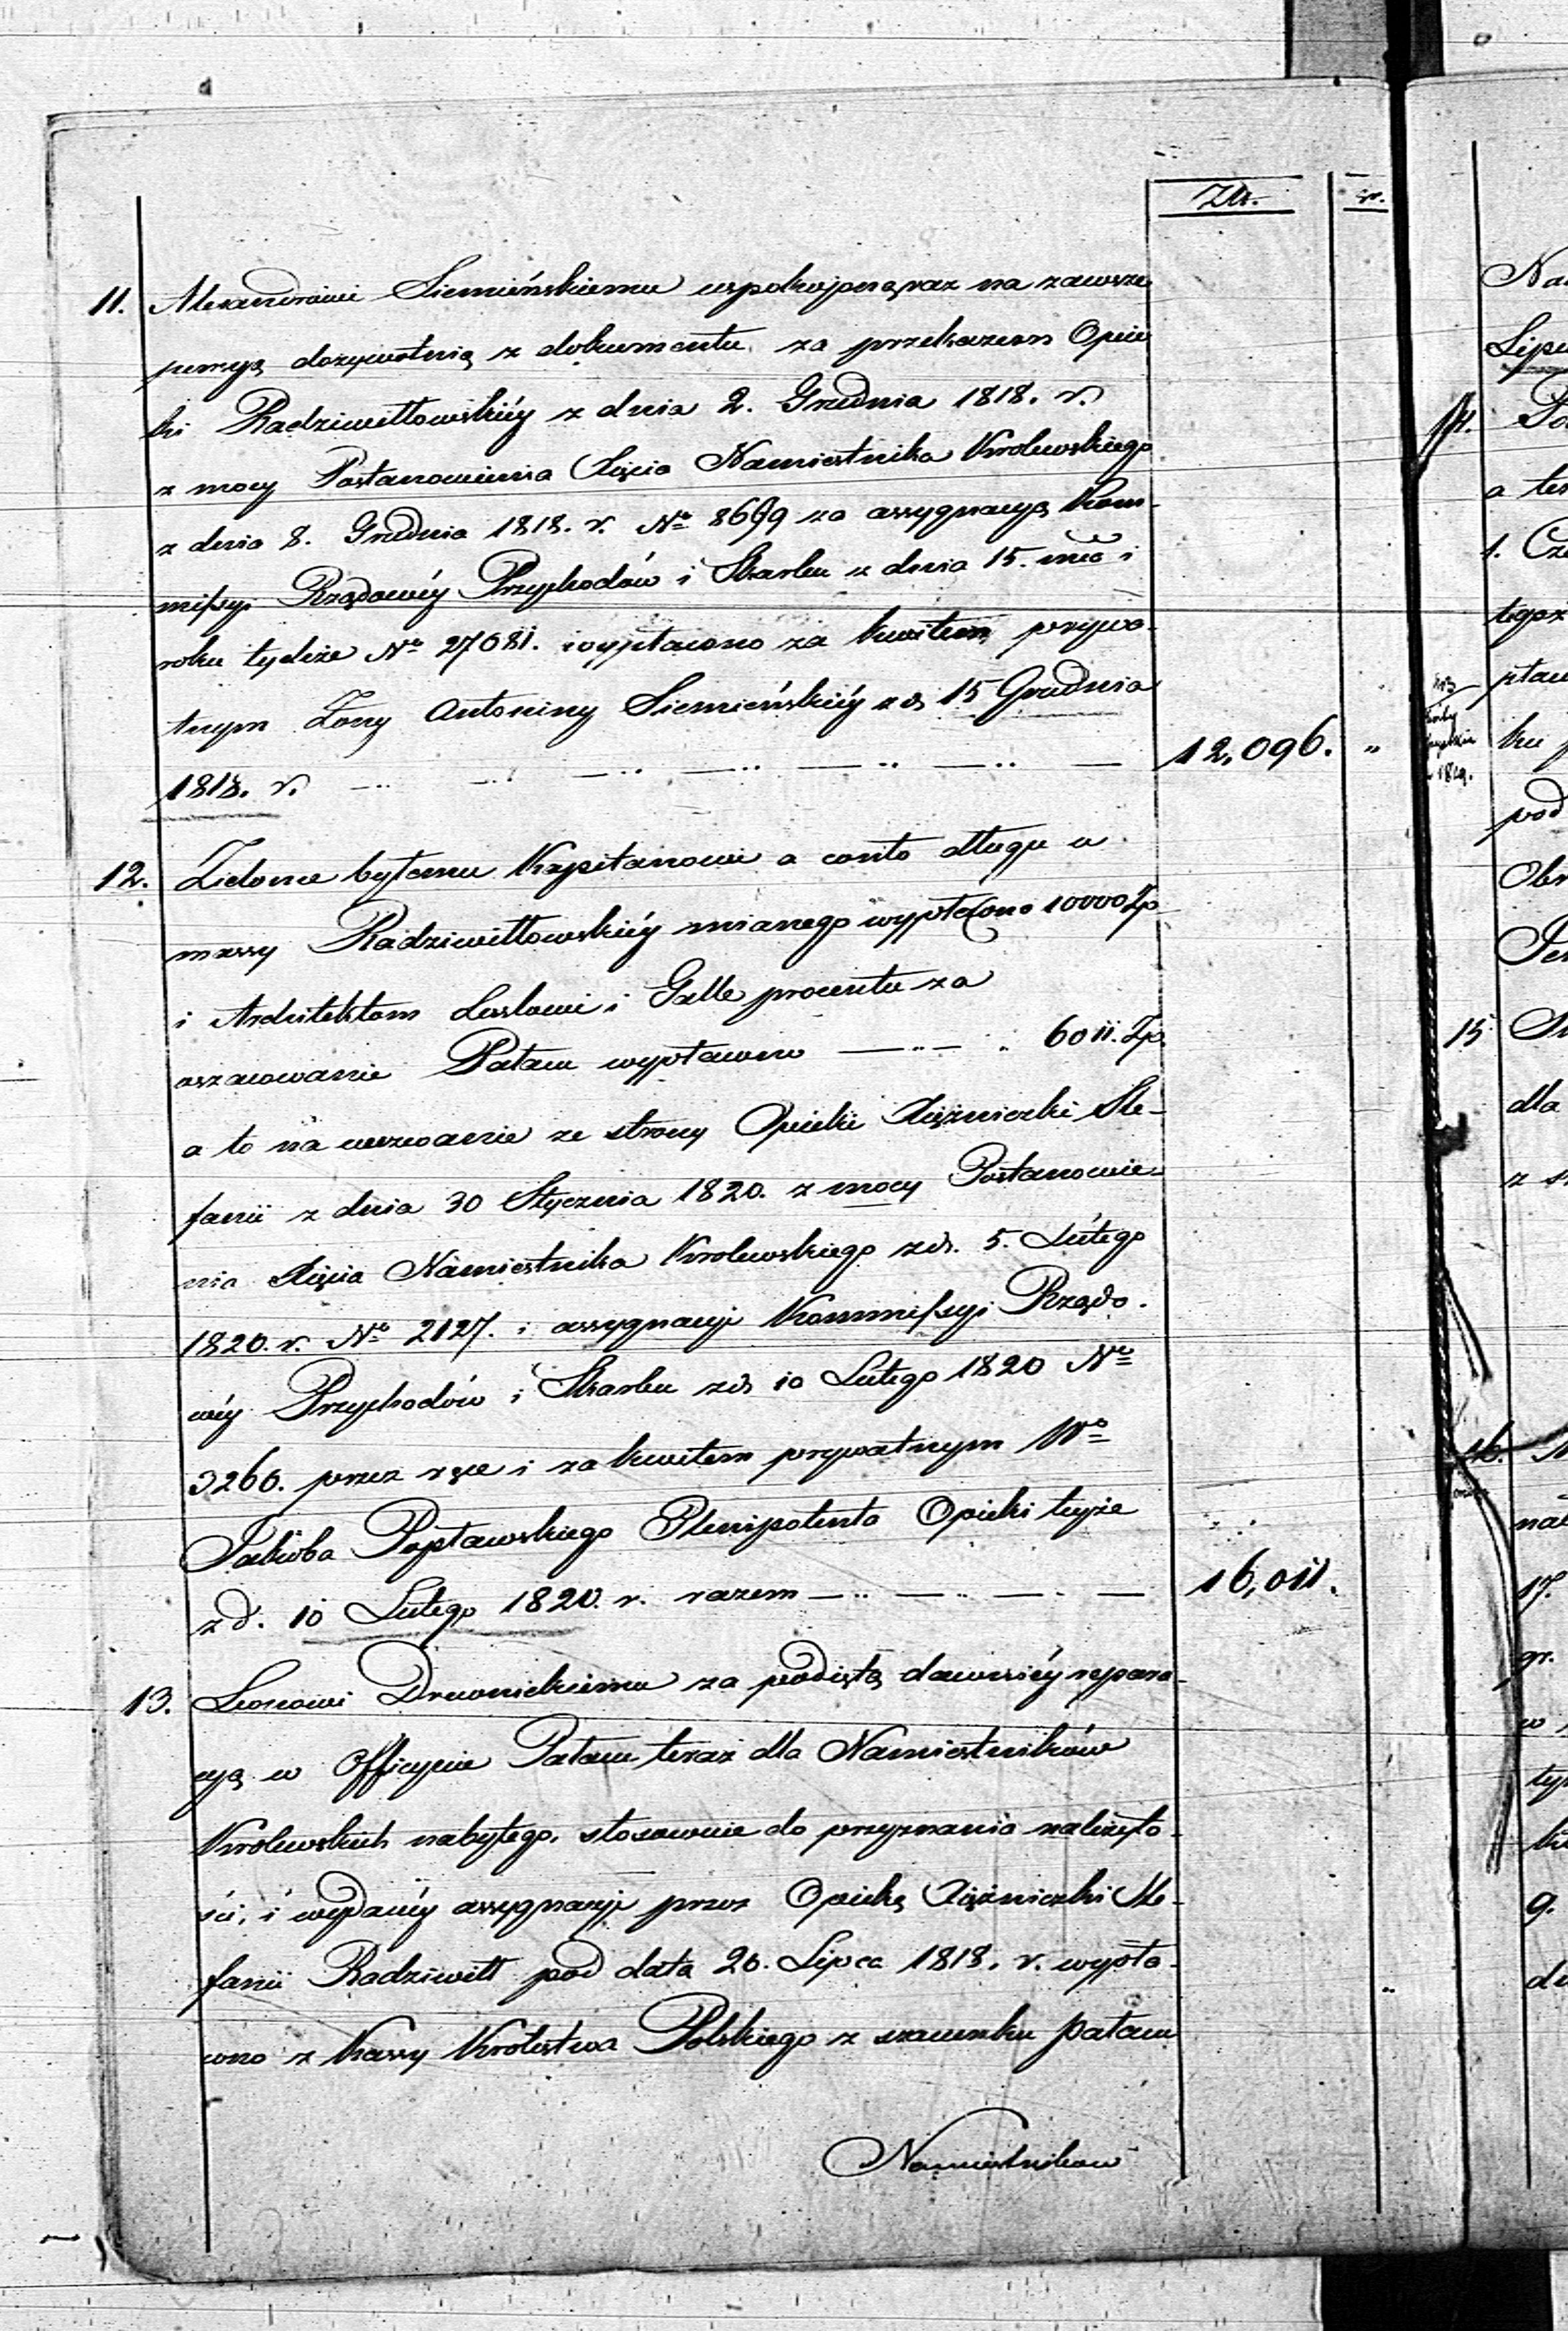 Złt. gr.
11. Alexandrowi Siemieńskiemu uspokojoną raz na zawsze
pensyą dożywotnią z dokumentu za przekazem Opie
ki Radziwiłłowskiéy z dnia 2. Grudnia 1818. r.
z mocy Postanowienia Xięcia Namiestnika Krolewskiego
z dnia 8. Grudnia 1818. r. No 8699 za assygnacyą Kom-
missyi Rządowéy Przychodów i Skarbu z dnia 15. mca i
roku tychże No 27081. wypłacono za kwitem prywa-
tnym Żony Antoniny Siemieńskiéy z d. 15 Grudnia
1818. r. 12,096. "
12. Zidome byłemu Kapitanowi a conto długu u
massy Radziwiłłowskiéy mianego wypłacono 10000 Zp
i Architektom i Galle procentu za
oszacowanie Pałacu wypłacono 6011. Zp.
a to na wezwanie ze strony Opieki Xiężniczki Ste-
fanii z dnia 30 Stycznia 1820. z mocy Postanowie-
nia Xięcia Namiestnika Krolewskiego z d. 5. Lutego
1820. r. No 2127. i assygnacyi Kommissyi Rządo-
wéy Przychodów i Skarbu z d. 10 Lutego 1820 No
3260. przez ręce i za kwitem prywatnym Wo
Jakóba Popławskiego Plenipotenta Opieki teyże
z d. 10 Lutego 1820. r. razem 16,011.
13. Leonowi Drewnickiemu za podjętą dawniéy repara-
cyą w Officynie Pałacu teraz dla Namiestników
Krolewskich nabytego, stosownie do przyznania należyto-
ści, i wydanéy assygnacyi przez Opiekę Xiężniczki Ste-
fanii Radziwiłł pod data 20. Lipca 1818. r. wypła-
cono z Kassy Krolestwa Polskiego z szacunku pałacu "
Namiestnikow
14.
a
1. Cze
tegoż
ku
pod
15
dla
16.
17.
gr.
w
g.